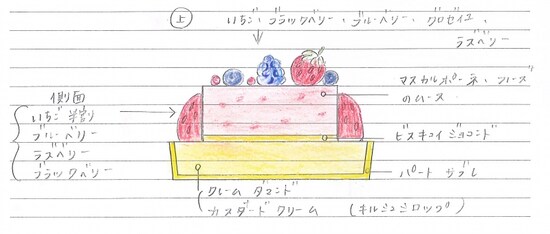 上
いちご、ブラックベリー、ブルーベリー、グロゼイユ、
ラズベリー
側面
いちご 半割り
ブルーベリー
ラズベリー
ブラックベリー
マスカルポーネ、フレーズ
のムース
ビスキュイ ジョコンド
パート サブレ
クレーム ダマンド
カスタード クリーム (キルシュシロップ)